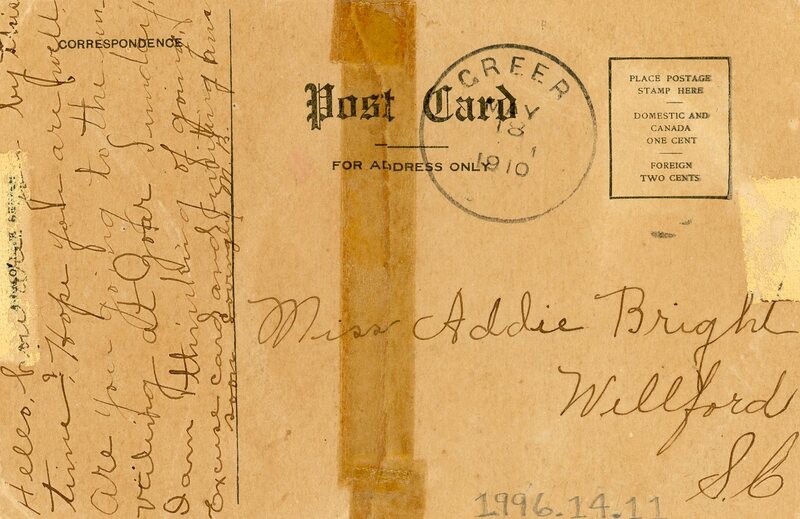 CORRESPONDENCE
Post Card
FOR ADDRESS ONLY
GREER
MAY
18
1910
PLACE POSTAGE
STAMP HERE
DOMESTIC AND
CANADA
ONE CENT
FOREIGN
TWO CENTS
Hello, how are you by this
time, Hope you are well
Are you going to the un-
vailing at Goar Sunday
I am thinking of going,
Excuse card and writing ans
soon
Miss Addie Bright
Wellford
S.C
1996.14.11